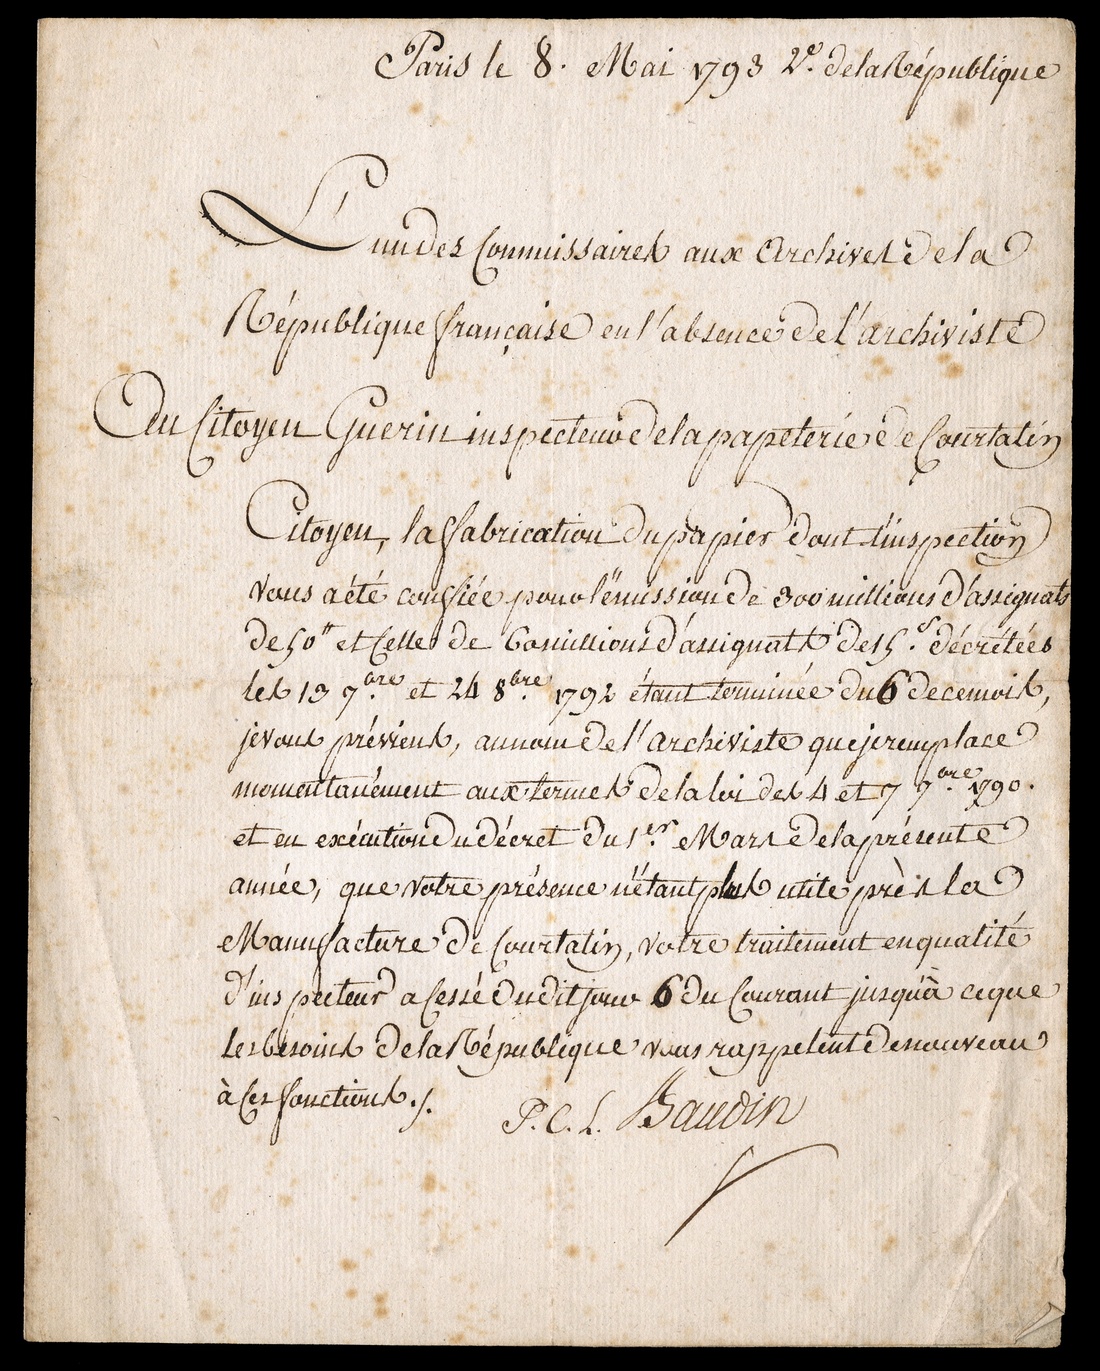 Paris le 8. Mai 1793 2.e de la République
L'un des Commissaires aux Archives de la
République française en l'absence de l'archiviste
Au Citoyen Guerin inspecteur de la papeterie de Courtalin
Citoyen, la fabrication du papier dont l'inspection
vous a été confiée pour l'émission de 300 millions d'assignats
de 50lt et Celle de 60 millions d'assignats de 15.s décrétées
les 13 7.bre et 24 8.bre 1792 étant terminée du 6 de ce mois,
je vous préviens, au nom de l'archiviste que je remplace
momentanément aux termes de la loi des 4 et 7 7.bre 1790.
et en exécution du décret du 1.er Mars de la présente
année, que votre présence n'étant plus utile près la
Manufacture de Courtalin, votre traitement en qualité
d'inspecteur a Cessé dudit jour 6 du Courant jusqu'à ce que
les besoins de la République vous rappelent de nouveau
à Ces fonctions ./.
P. C. L. Baudin